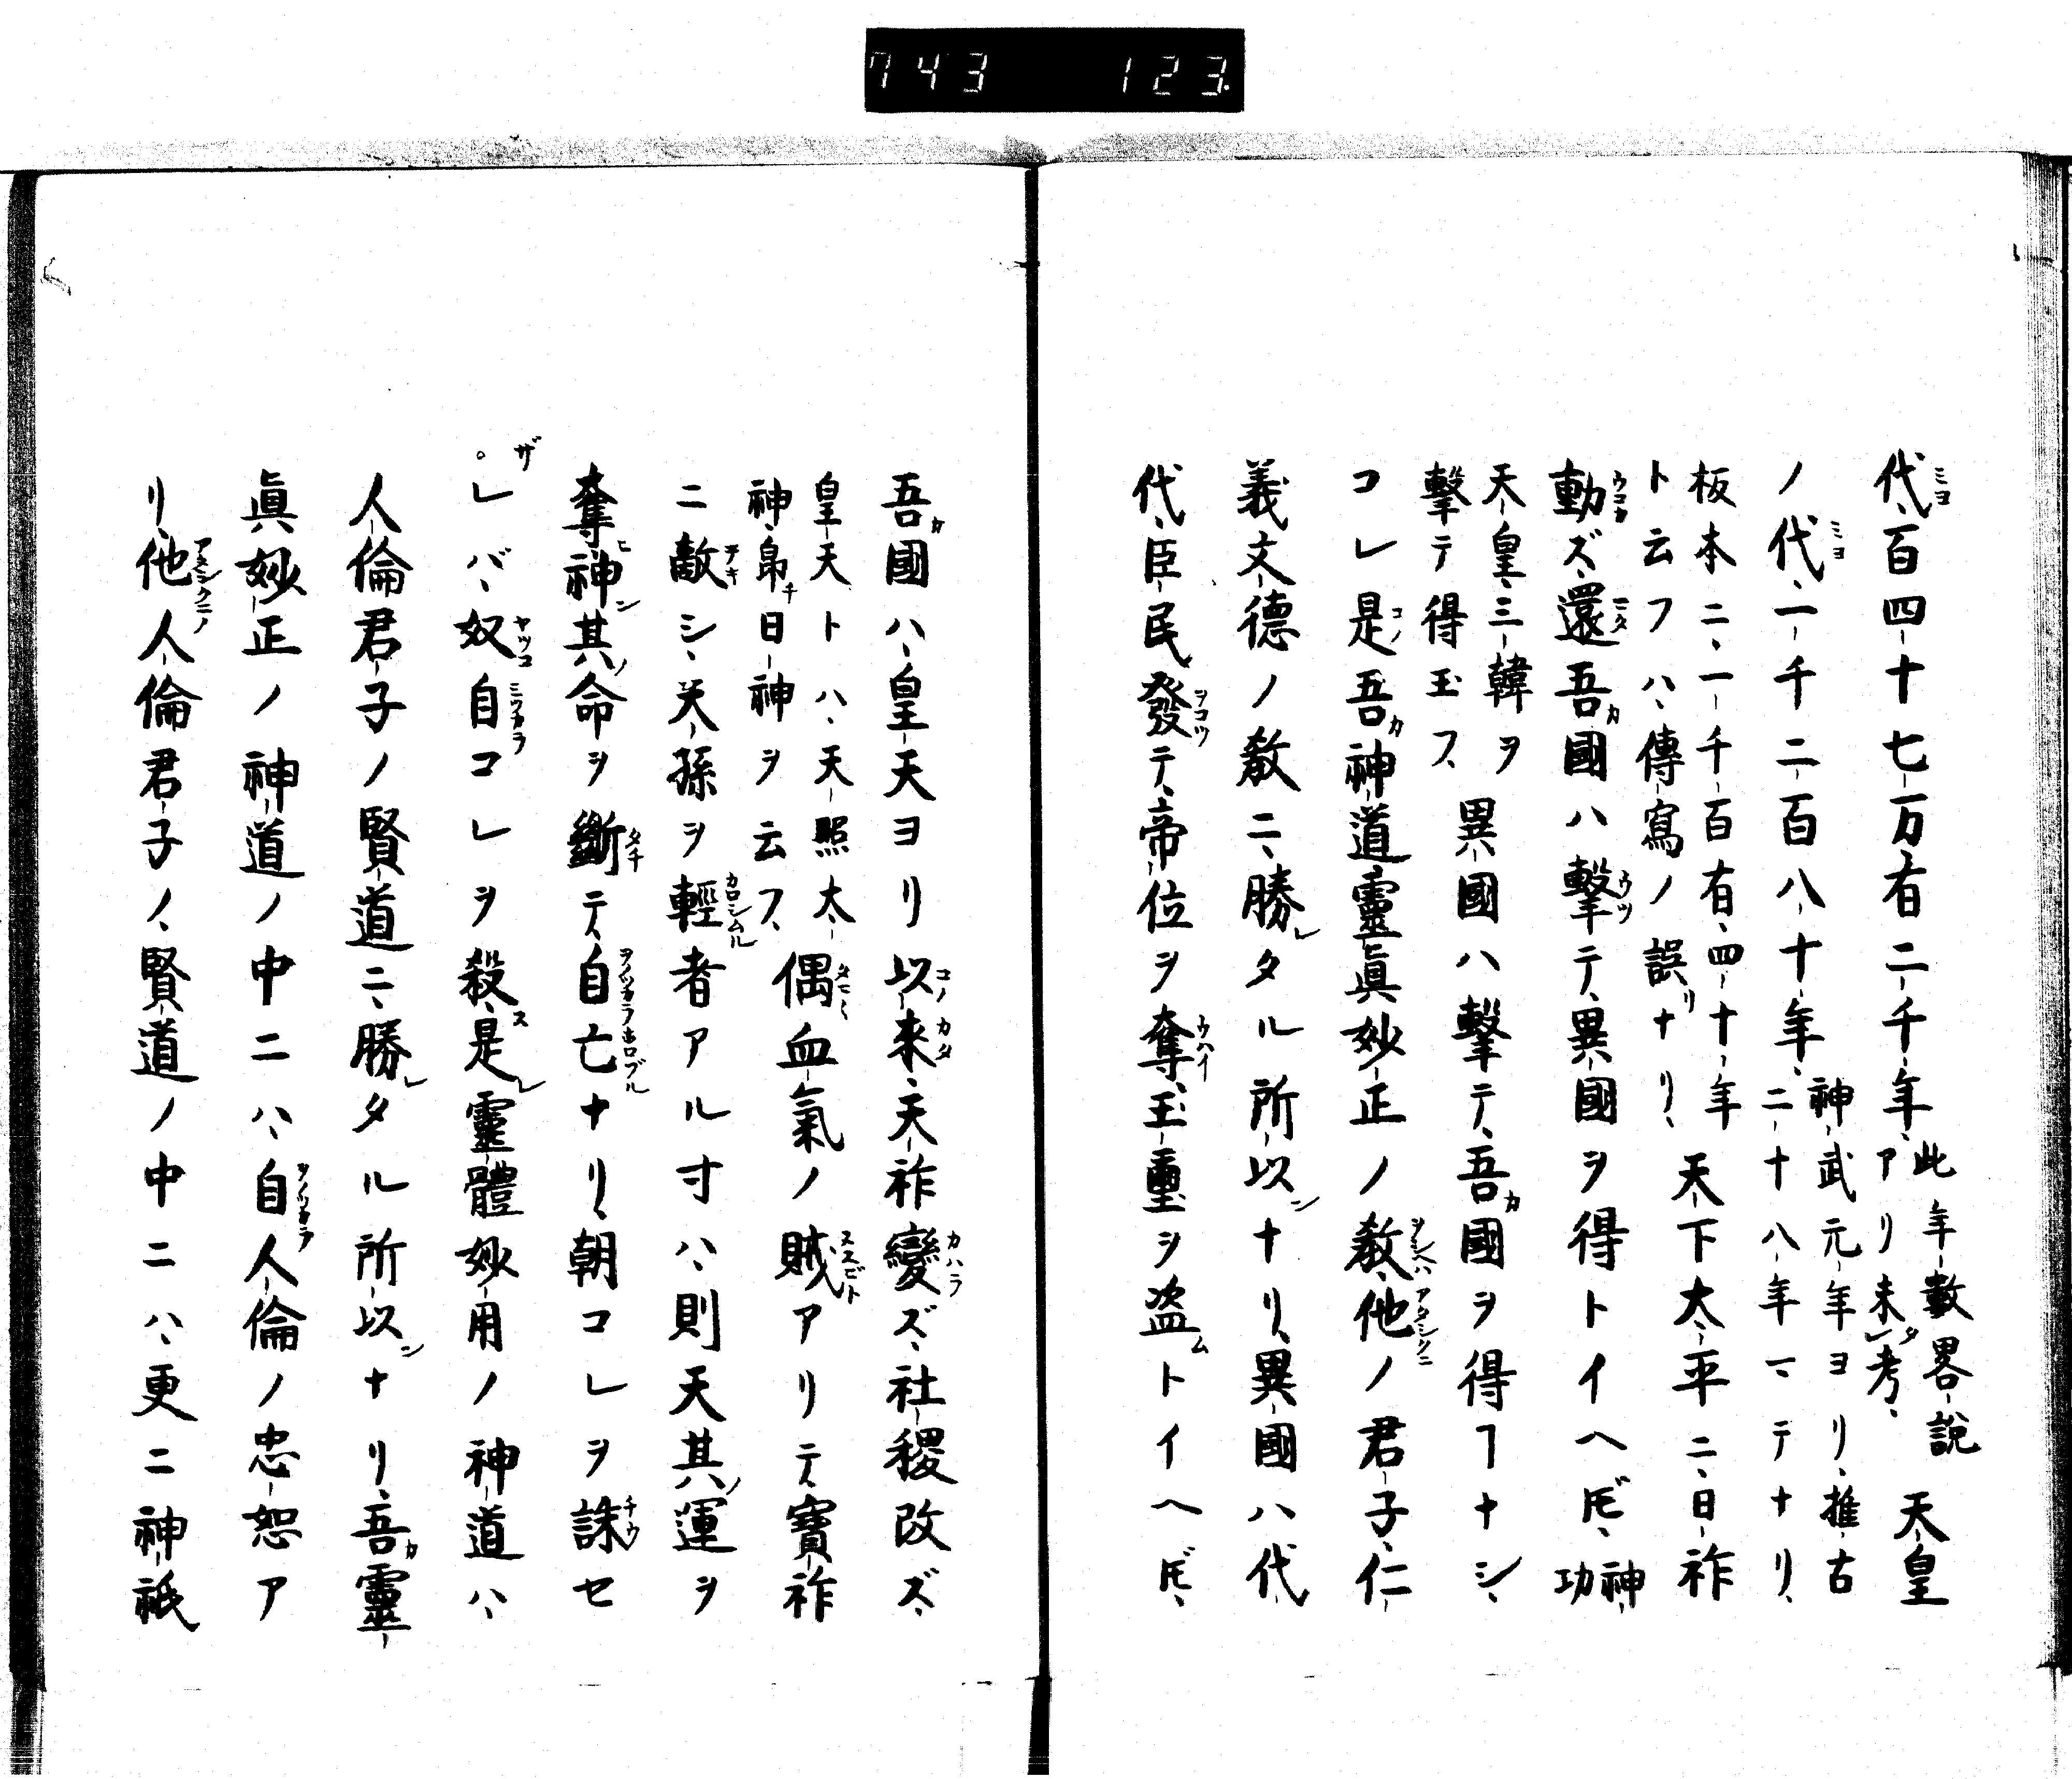 743 123
代、百四十七万有二千年、此年數畧説アリ未考、天皇
ノ代、一千二百八十年、神武元年ヨリ、推古二十八年マテナリ、
板本ニ、一千百有四十年ト云フハ、傳寫ノ誤ナリ、天下太平ニ、日祚
動ズ、還吾國ハ撃テ、異國ヲ得トイヘ𪜈、神功
天皇、三韓ヲ撃テ得玉フ、異國ハ撃テ、吾國ヲ得ヿナシ、
コレ是吾神道、靈眞妙正ノ教、他ノ君子、仁
義文德ノ教ニ、勝タル所以ナリ、異國ハ代
代、臣民發テ、帝位ヲ奪、玉璽ヲ盗トイヘ𪜈、
吾國ハ、皇天ヨリ以來、天祚變ズ、社稷改ズ、
皇天トハ、天照大神、帰日神ヲ云フ、偶血氣ノ賊アリテ、寶祚
ニ敵シ、天孫ヲ輕者アル寸ハ、則天其運ヲ
奪神其命ヲ斷テ、自亡ナリ、朝コレヲ誅セ
ザレバ、奴自コレヲ殺、是靈體妙用ノ神道ハ、
人倫君子ノ賢道ニ、勝タル所以ナリ、吾靈
眞妙正ノ神道ノ中ニハ、自人倫ノ忠恕ア
リ、他人倫君子ノ、賢道ノ中ニハ、更ニ神祇